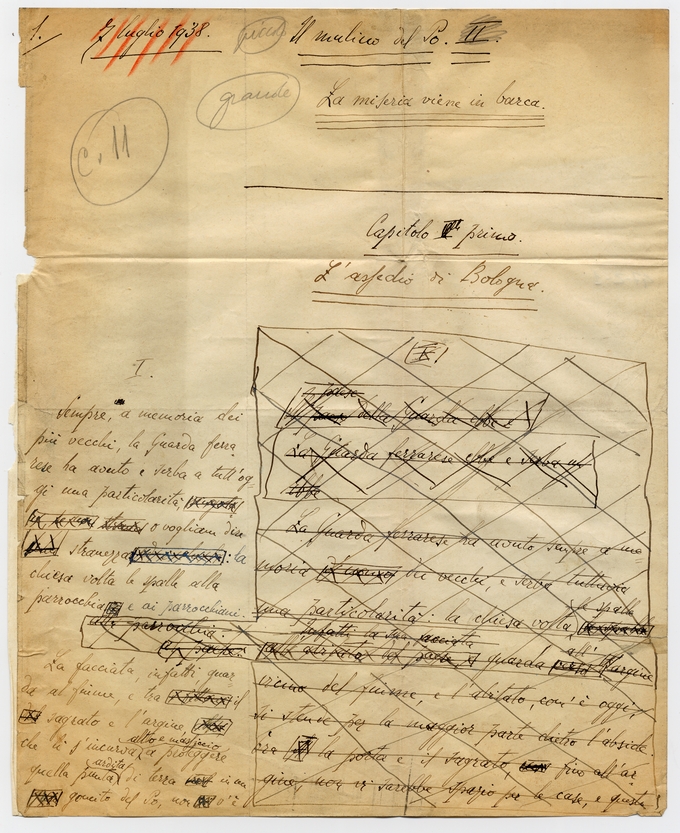 1.
7 luglio 1938.
Il mulino del Po. II.
grande
La miseria viene in barca.
C. 11
Capitolo primo.
L'assedio di Bologna.
I.
Sempre, a memoria dei
più vecchi, la Guarda ferra
rese ha avuto e serba a tutt'og-
gi una particolarità,
o vogliam dire
stranezza: la
chiesa volta le spalle alla
parrocchia e ai parrocchiani.
La facciata, infatti guar
da al fiume, e tra il
sagrato e l'argine
che lì s'incurva alto e massiccio a proteggere
quella punta ardita di terra in un
gomito del Po, non v'è
I
Il paese
della Guarda ebbe
La Guarda ferrarese ebbe e serva un
La Guarda ferrarese ha avuto sempre a me-
moria dei vecchi e serva tuttavia
una particolarità: la chiesa volta le spalle
guarda all'argine
vicino del fiume, e l'abitato, com'è oggi,
si stende per la maggior parte dietro l'abside.
la porta e il sagrato, fino all'ar
gine, non vi sarebbe spazio per le case, e questa